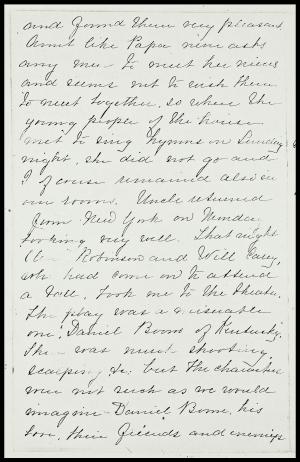 and found them very pleasant.
Aunt like Papa never asks
any one to meet her nieces
and seems not to wish them
to meet together, so when the
young people of the house
met to sing hymns on Sunday
night, she did not go and
I of course remained also in
our room. Uncle returned
from New York on Monday
looking very well. That night
Robinson and Will Carey,
who had come on to attend
a Ball, took me to the theatre.
The play was a miserable
one; Daniel Boone of Kentucky.
There was much shooting,
scalping &c. but the characters
were not such as we would
imagine Daniel Boone, his
son, their friends and enemies